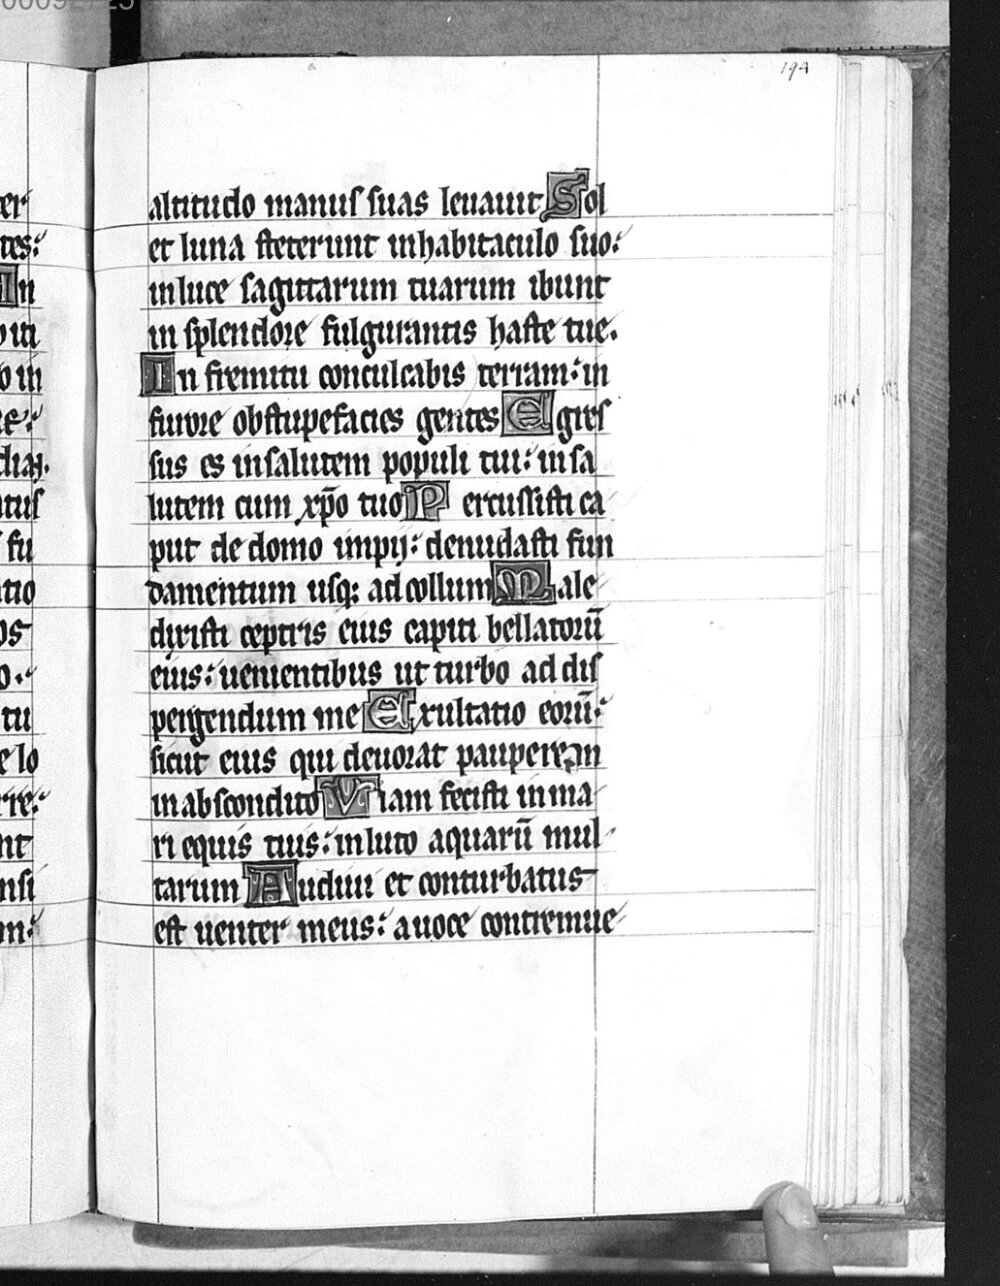 194
altitudo manuſ ſuas leuauit Sol
et luna ſteterunt inhabitaculo ſuo:
inluce ſagittarum tuarum ibunt
in ſplendore fulgurantis haſte tue.
In fremitu conculcabis terram: in
furore obſtupefacies gentes Egreſ
ſus es inſalutem populi tui: inſa
lutem cum xp̄o tuo Percuſſiſti ca
put de domo impij: denudaſti fun
damentum uſq; ad collum Male
dixiſti ceptris eius capiti bellatorū
eius: uenientibus ut turbo ad diſ
pergendum me Exultatio eorū:
ſicut eius qui deuorat pauperem
inabſcondito Viam feciſti inma
ri equis tuis: inluto aquarū mul
tarum Audiui et conturbatus
eſt uenter meus: auoce contremue